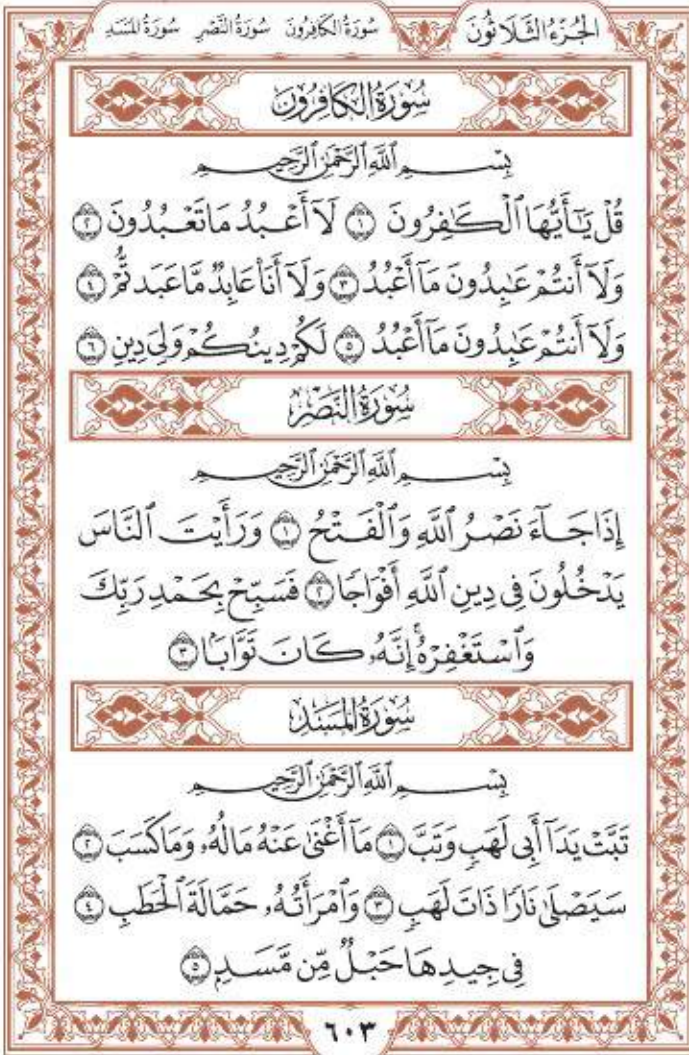 الجُزْءُ الثَّلَاثُونَ سُورَةُ الكَافِرُونَ سُورَةُ النَّصْرِ سُورَةُ المَسَدِ
سُورَةُ الكَافِرُونَ
بِسْمِ ٱللَّهِ ٱلرَّحْمَٰنِ ٱلرَّحِيمِ
قُلْ يَـٰٓأَيُّهَا ٱلْكَـٰفِرُونَ ١ لَآ أَعْبُدُ مَا تَعْبُدُونَ ٢
وَلَآ أَنتُمْ عَـٰبِدُونَ مَآ أَعْبُدُ ٣ وَلَآ أَنَا۠ عَابِدٌ مَّا عَبَدتُّمْ ٤
وَلَآ أَنتُمْ عَـٰبِدُونَ مَآ أَعْبُدُ ٥ لَكُمْ دِينُكُمْ وَلِيَ دِينِ ٦
سُورَةُ النَّصْرِ
بِسْمِ ٱللَّهِ ٱلرَّحْمَٰنِ ٱلرَّحِيمِ
إِذَا جَآءَ نَصْرُ ٱللَّهِ وَٱلْفَتْحُ ١ وَرَأَيْتَ ٱلنَّاسَ
يَدْخُلُونَ فِى دِينِ ٱللَّهِ أَفْوَاجًا ٢ فَسَبِّحْ بِحَمْدِ رَبِّكَ
وَٱسْتَغْفِرْهُ ۚ إِنَّهُۥ كَانَ تَوَّابًۢا ٣
سُورَةُ المَسَدِ
بِسْمِ ٱللَّهِ ٱلرَّحْمَٰنِ ٱلرَّحِيمِ
تَبَّتْ يَدَآ أَبِى لَهَبٍ وَتَبَّ ١ مَآ أَغْنَىٰ عَنْهُ مَالُهُۥ وَمَا كَسَبَ ٢
سَيَصْلَىٰ نَارًا ذَاتَ لَهَبٍ ٣ وَٱمْرَأَتُهُۥ حَمَّالَةَ ٱلْحَطَبِ ٤
فِى جِيدِهَا حَبْلٌ مِّن مَّسَدٍۭ ٥
٦٠٣